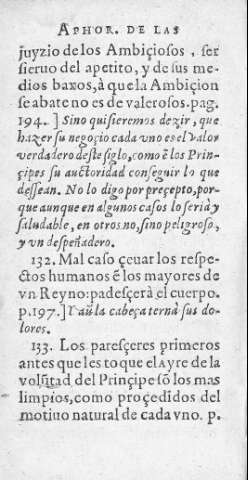 APHOR. DE LAS
juyzio de los Ambiçiosos, ser
sieruo del apetito, y de sus me-
dios baxos, à que la Ambiçion
se abate no es de valerosos. pag.
194.] Sino quisieremos dezir, que
hazer su negoçio cada vno es el valor
verdadero deste siglo, como ẽ los Prin-
çipes su auctoridad conseguir lo que
dessean. No lo digo por preçepto, por-
que aunque en algunos casos lo seria y
saludable, en otros no, sino peligroso,
y vn despeñadero.
132. Mal caso çeuar los respe-
ctos humanos ẽ los mayores de
vn Reyno: padesçerà el cuerpo.
p. 197.] Y aũ la cabeça ternà sus do-
lores.
133. Los paresçeres primeros
antes que les toque el Ayre de la
volũtad del Prinçipe sõ los mas
limpios, como proçedidos del
motiuo natural de cada vno. p.